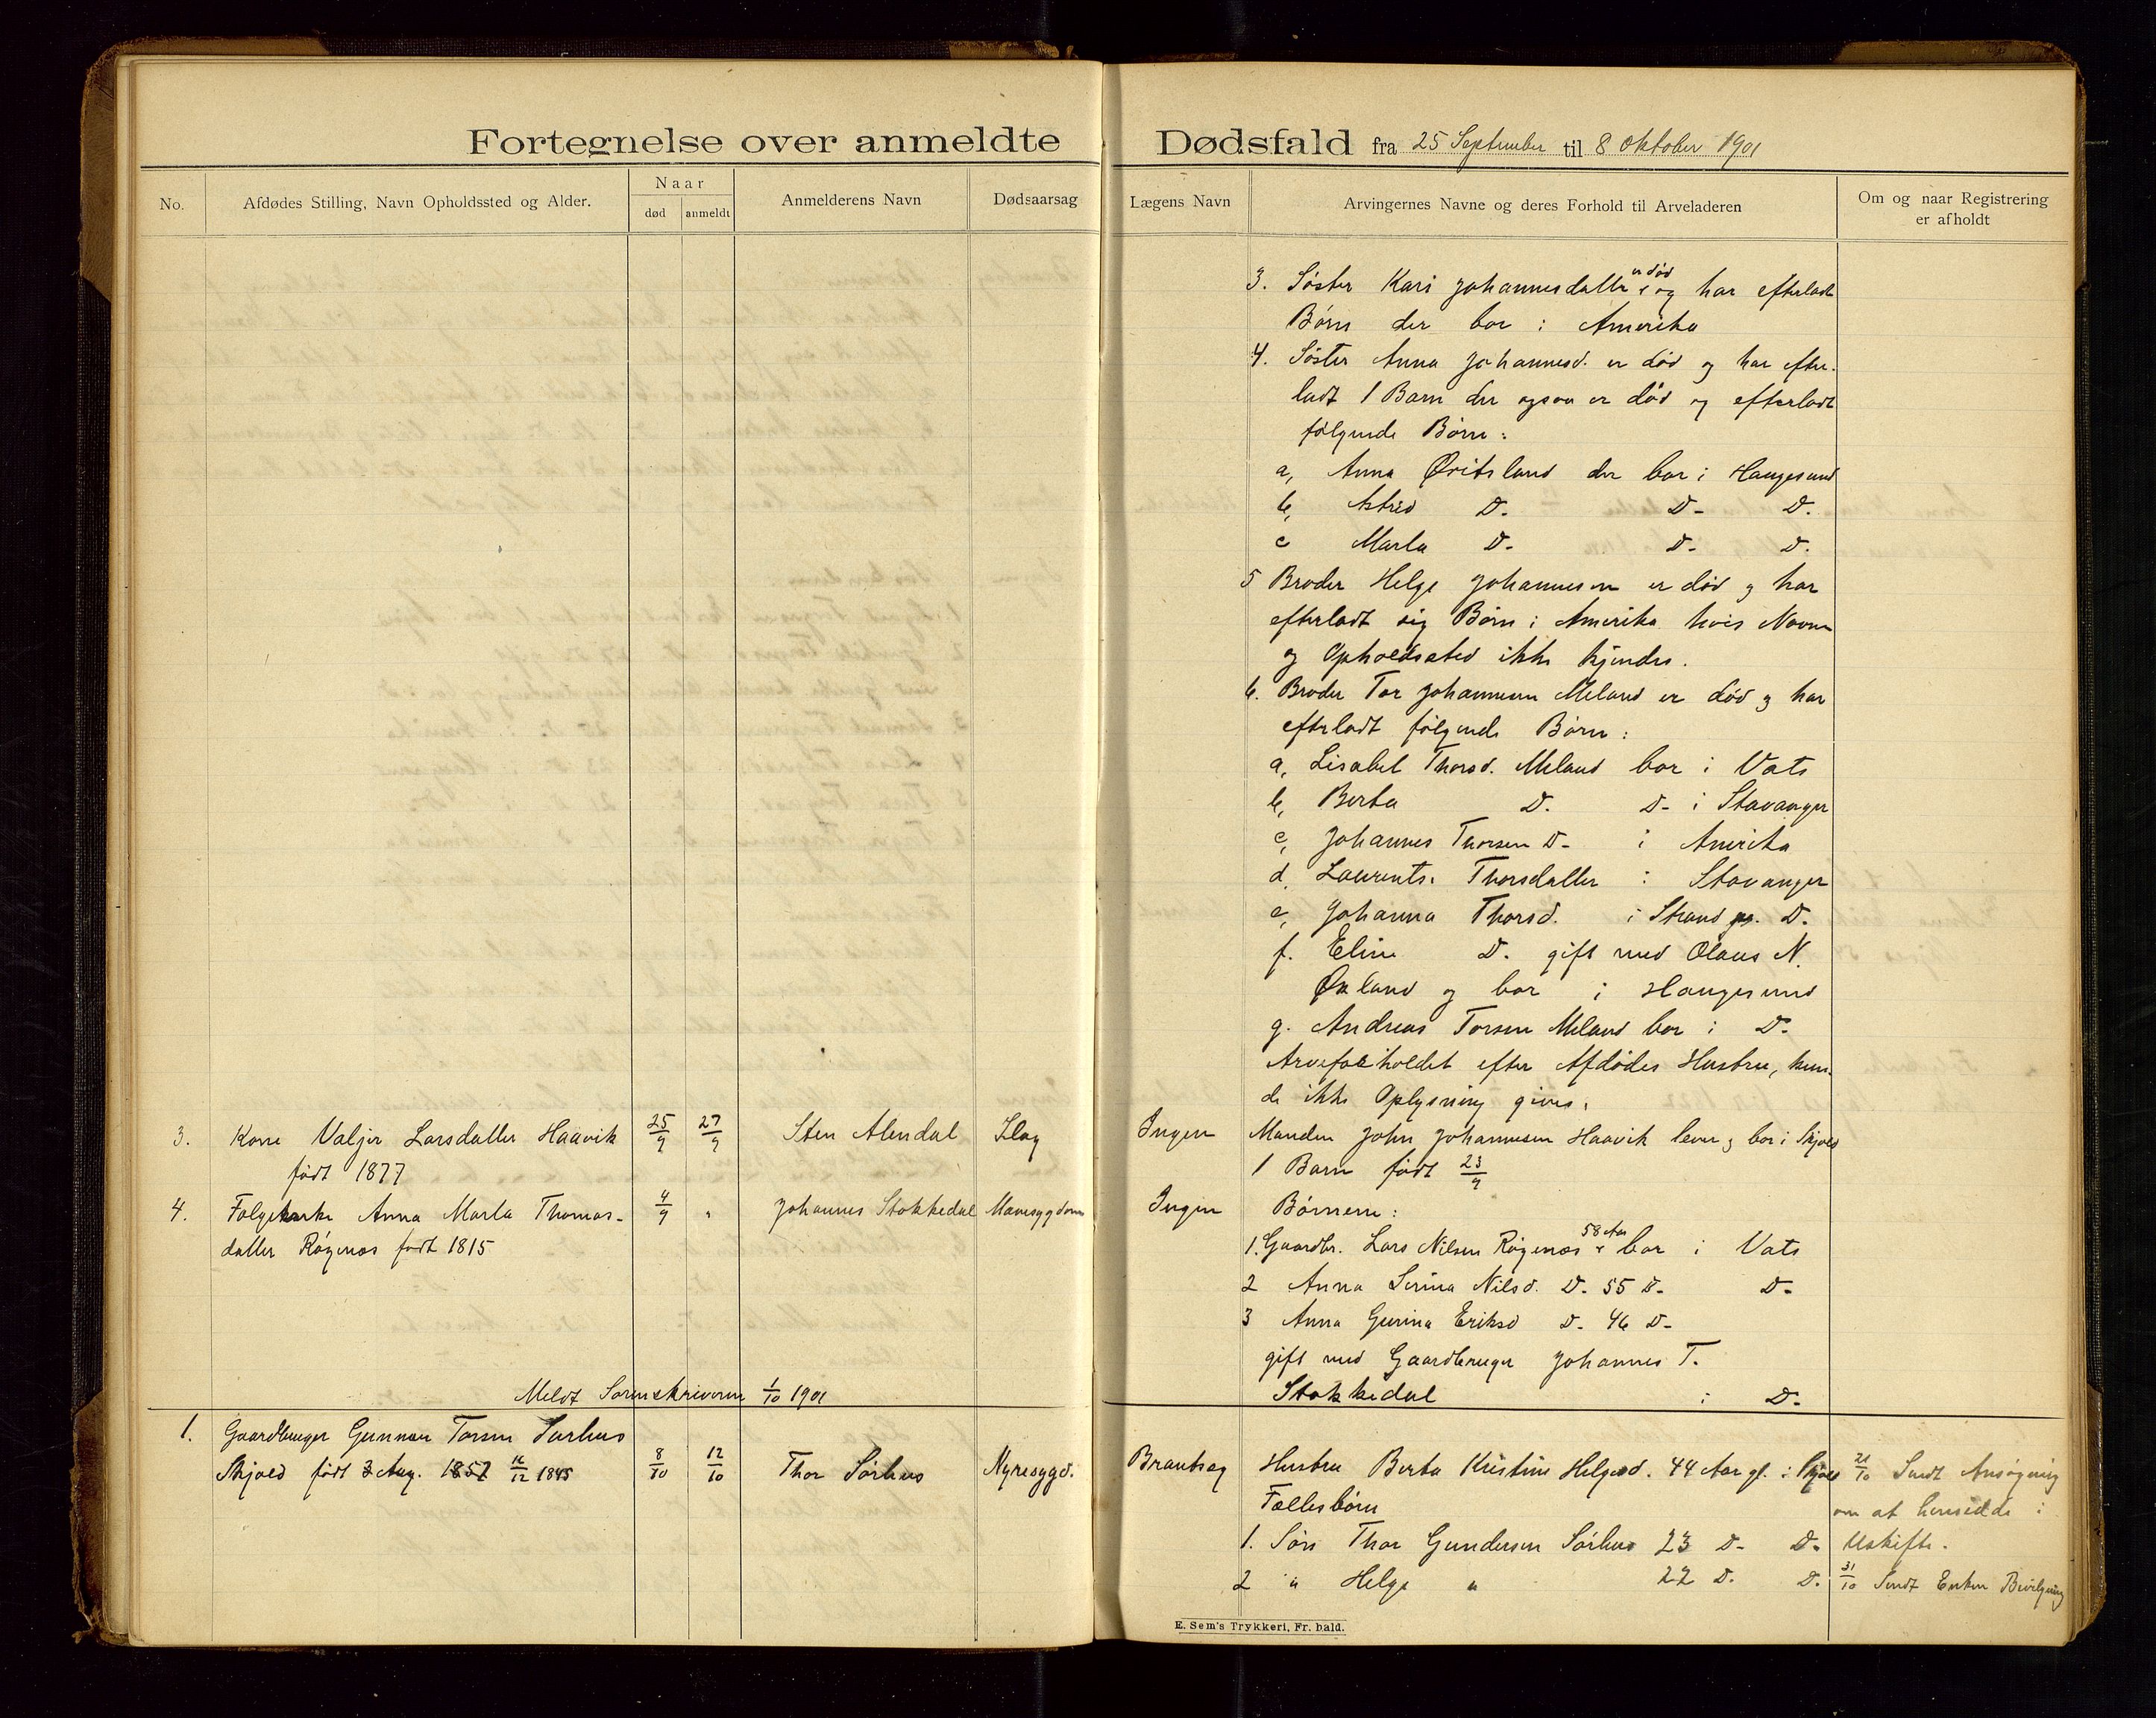 Fortegnelse over anmeldte Dødsfald fra 25 September til 8 Oktober 1901
No.
Afdødes Stilling, Navn Opholdssted og Alder.
Naar
død
anmeldt
Anmelderens Navn
Dødsaarsag
Lægens Navn
Arvingernes Navne og deres Forhold til Arveladeren
Om og naar Registrering
er afholdt
3. Søster Kari Johannesdatter er død og har efterladt
Børn der bor i Amerika
4. Søster Anna Johannesd. er død og har efter-
ladt 1 Barn der ogsaa er død og efterladt
følgende Børn:
a, Anna Øvitsland der bor i Haugesund
b, Astrid D. D- D.
c Marta D- D- D.
5 Broder Helge Johannesen er død og har
efterladt sig Børn i Amerika hvis Navne
og Opholdssted ikke kjendes.
6. Broder Tor Johannesen Meland er død og har
efterladt følgende Børn:
a, Lisabet Thorsd. Meland bor i Vats
b, Berta D. D- i Stavanger
c, Johannes Thorsen D- i Amerika
d. Laurents. Thorsdatter i Stavanger
e, Johanna Thorsd. i Strand pr. D.
f. Eline D. gift med Olaus N.
Øxland og bor i Haugesund
g. Andreas Torsen Meland bor i D.
Arveforholdet efter Afdødes Hustru, kun-
de ikke Oplysning gives.
3. Kone Valjer Larsdatter Haavik 25/9 27/9 Sten Alendal Slag Ingen Manden John Johannesen Haavik lever og bor i Skjold
født 1877 1 Barn født 23/9
4. Folgekarke Anna Marta Thomas- 4/9 " Johannes Stokkedal Mavesygdom Ingen Børnene:
datter Røgenes født 1815 1. Gaardbr. Lars Nilsen Røgenes 58 Aar bor i Vats
2 Anna Serina Nilsd. D. 55 D. D-
3 Anna Gurina Eriksd D. 46 D-
gift med Gaardbruger Johannes T.
Stokkedal i D-
Meldt Sorenskriveren 1/10 1901
1. Gaardbruger Gunnar Torsen Sørhus
Skjold født 3 Aug. 1857 16/12 1845 8/10 12/10 Thor Sørhus Nyresygd. Brantsæg Hustru Berta Kristine Helgesd. 44 Aar gl. i Skjold 21/10 Sendt Ansøgning
Fællesbørn om at hensidde i
1. Søn Thor Gundersen Sørhus 23 D- D. Uskifte.
2 " Helge " 22 D. D. 31/10 Sendt Enken Bevilgning
E. Sem's Trykkeri, Fr. hald.